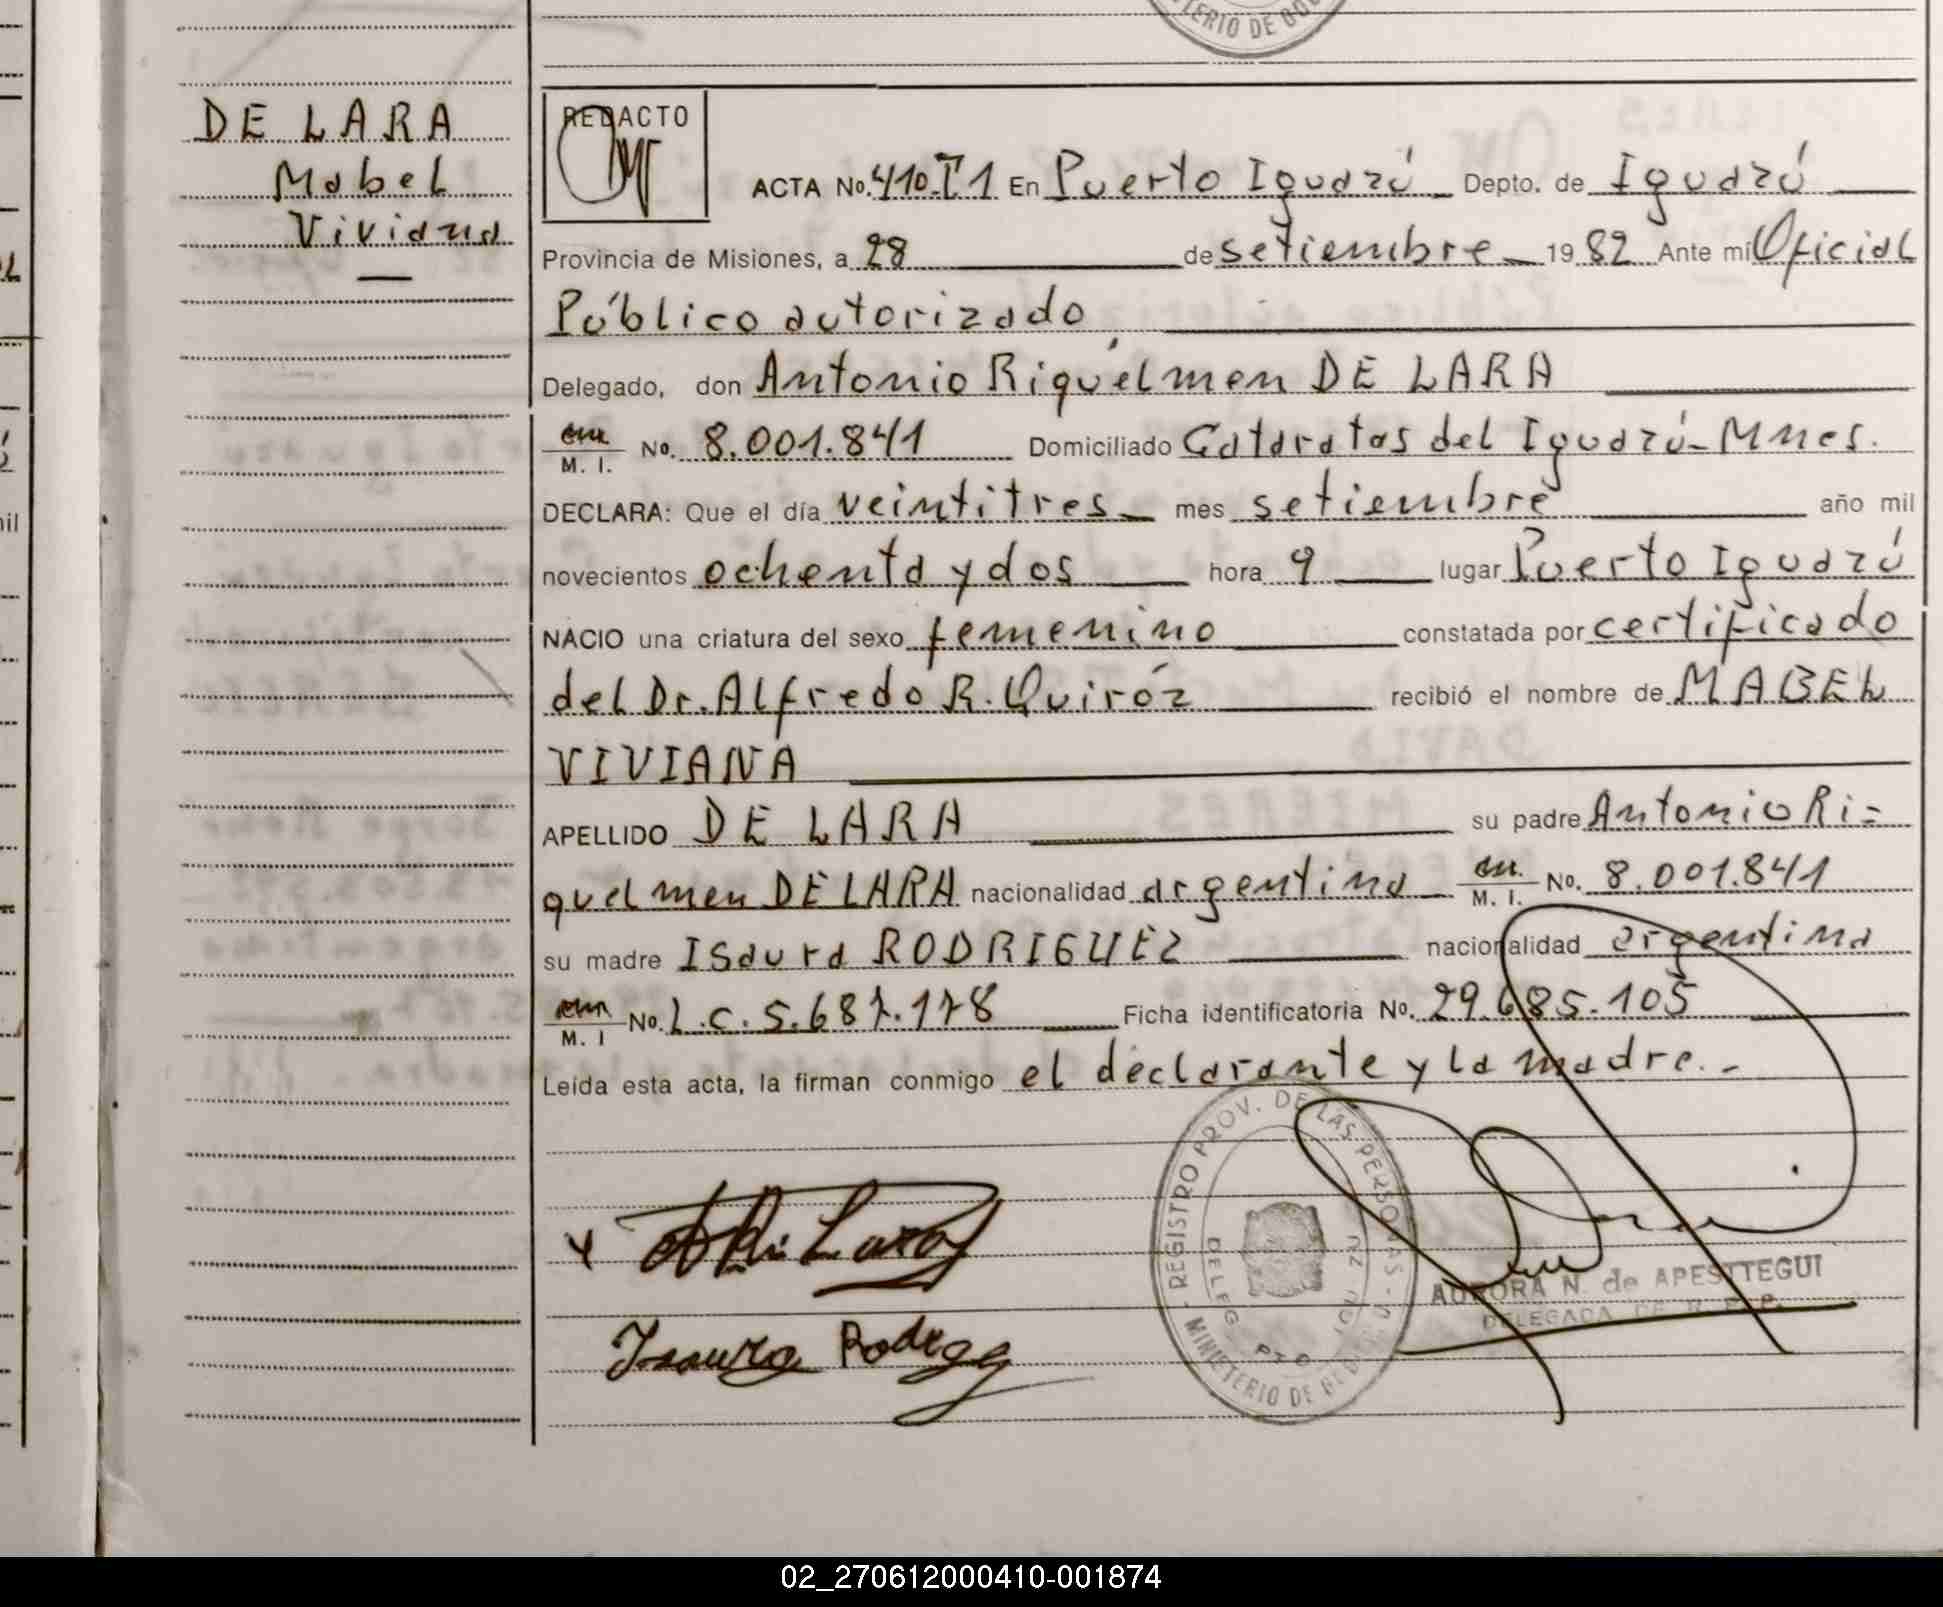 MINISTERIO DE GOB
DE LARA
Mabel
Viviana
REDACTO
ACTA No. 410.T1 En Puerto Iguazú Depto. de Iguazú
Provincia de Misiones, a 28 de setiembre 1982 Ante mí Oficial
Público autorizado
Delegado, don Antonio Riquelmen DE LARA
M. I. No. 8.001.841 Domiciliado Cataratas del Iguazú-Mnes.
DECLARA: Que el día veintitres mes setiembre año mil
novecientos ochenta y dos hora 9 lugar Puerto Iguazú
NACIO una criatura del sexo femenino constatada por certificado
del Dr. Alfredo R. Quiróz recibió el nombre de MABEL
VIVIANA
APELLIDO DE LARA su padre Antonio Ri=
quelmen DE LARA nacionalidad argentina M. I. No. 8.001.841
su madre Isaura RODRIGUEZ nacionalidad argentina
M. I No. L.C. 5.687.178 Ficha identificatoria No. 29.685.105
Leída esta acta, la firman conmigo el declarante y la madre.-
Isaura Rodrigz
REGISTRO PROV. DE LAS PERSONAS
MINISTERIO DE
AURORA N. de APESTTEGUI
DELEGADA DE R. P. P.
02_270612000410-001874